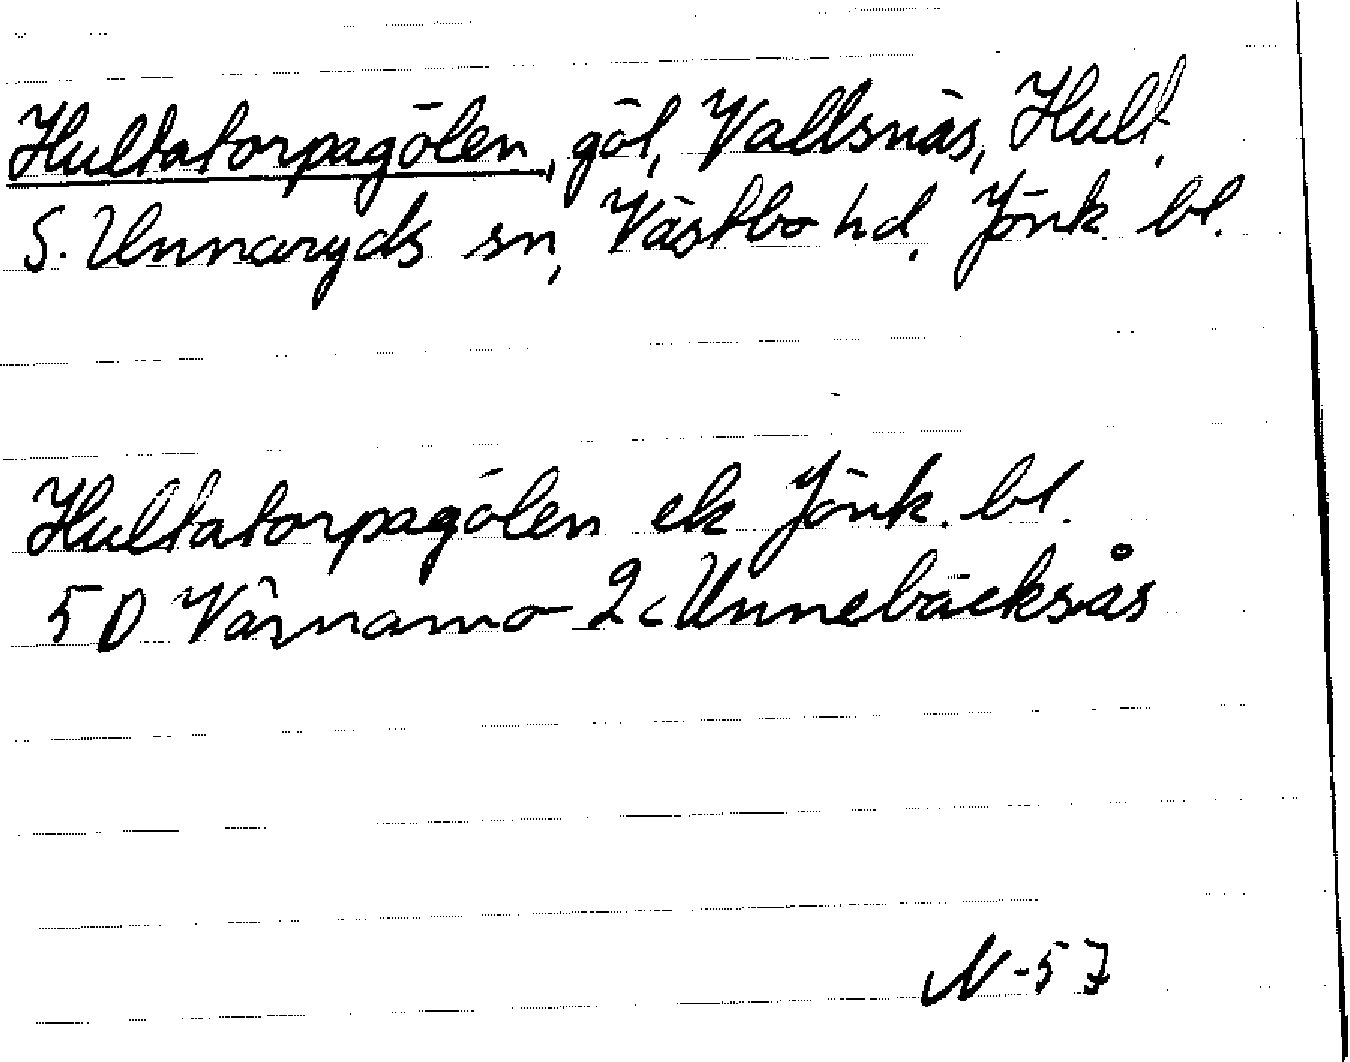 Hultatorpagölen, göl, Vallsnäs, Hult,
S. Unnaryds sn, Västbo hd. Jönk. bl.
Hultatorpagölen ek Jönk. bl.
5D Värnamo 2c Unnebäcksås
N-57